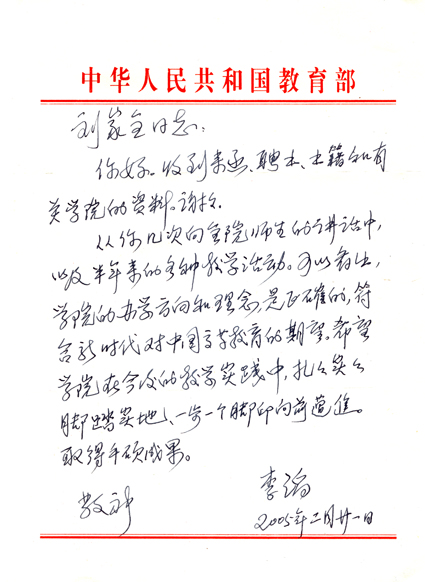 中华人民共和国教育部
刘家全同志：
你好。收到来函、聘书、书籍和有
关学院的资料。谢谢。
从你几次向全院师生的讲话中，
以及半年来的各种教学活动。可以看出，
学院的办学方向和理念，是正确的，符
合新时代对中国高等教育的期望。希望
学院在今后的教学实践中，扎扎实实
脚踏实地、一步一个脚印向前迈进。
取得丰硕成果。
敬礼
李
2005年二月廿一日